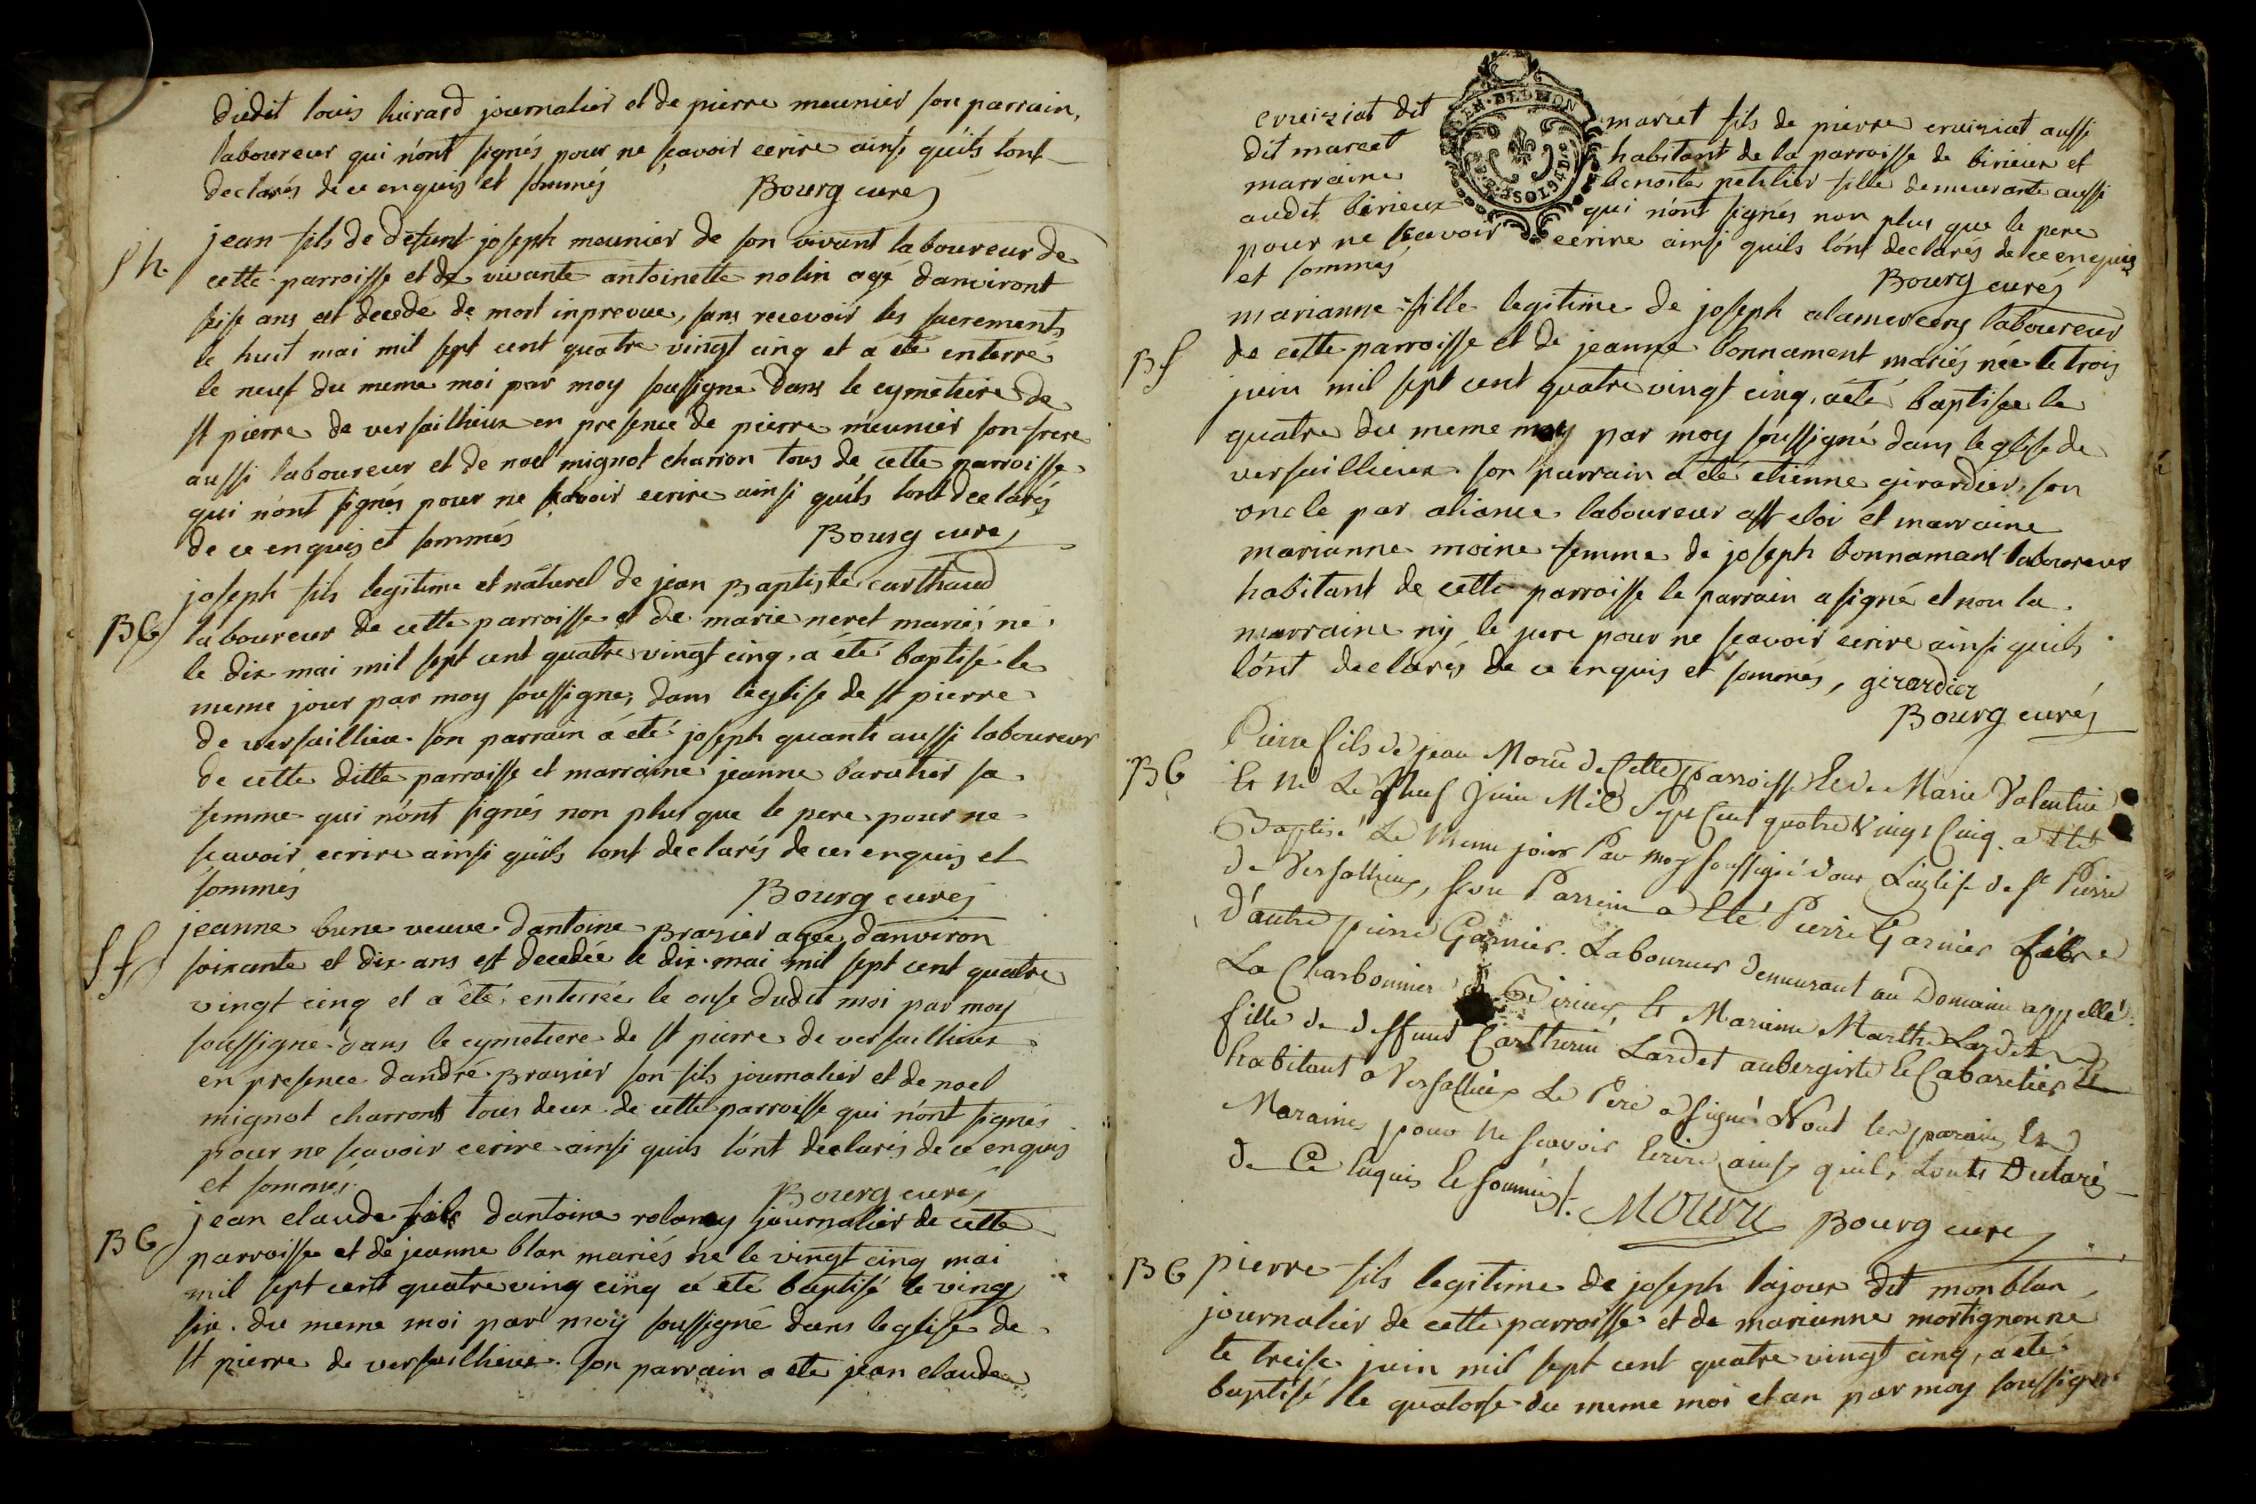 dudit louis huvard journalier et de pierre meunier son parrain,
laboureur qui n'ont signés pour ne sçavoir ecrire ainsi qu'ils l'ont
declarés de ce enquis et sommés Bourg curé
Sh. jean fils de defunt joseph meunier de son vivant laboureur de
cette parroisse et de vivante antoinette nolin agé d'anviront
seise ans est decedé de mort inprevue, sans recevoir les sacrements
le huit mai mil sept cent quatre vingt cinq et a été enterré
le neuf du meme moi par moy soussigné dans le cymetiere de
st pierre de versaillieux en presence de pierre meunier son frere
aussi laboureur et de noel mignot charron tous de cette parroisse
qui n'ont signés pour ne sçavoir ecrire ainsi qu'ils l'ont declarés
de ce enquis et sommés Bourg curé
joseph fils legitime et naturel de jean Baptiste carthaud
BG laboureur de cette parroisse et de marie neret mariés né
le dix mai mil sept cent quatre vingt cinq, a été baptisé le
meme jour par moy soussigné, dans l'eglise de st pierre
de versaillieux. son parrain a été joseph quanti aussi laboureur
de cette ditte parroisse et marraine jeanne baratier sa
femme qui n'ont signés non plus que le pere pour ne
sçavoir ecrire ainsi qu'ils l'ont declarés de ce enquis et
sommés Bourg curé
Sf jeanne bune veuve d'antoine Brasier agée d'anviron
soixante et dix ans est decedée le dix mai mil sept cent quatre
vingt cinq et a été enterrée le onse dudit moi par moy
soussigné dans le cymetiere de st pierre de versaillieux
en presence d'andré Brasier son fils journalier et de noel
mignot charront tous deux de cette parroisse qui n'ont signés
pour ne sçavoir ecrire ainsi quils l'ont declarés de ce enquis
et sommés Bourg curé
BG jean claude fils d'antoine rolany journalier de cette
parroisse et de jeanne blan mariés né le vingt cinq mai
mil sept cent quatre ving cinq a été baptisé le ving
six du meme moi par moy soussigné dans l'eglise de
st pierre de versaillieux. son parrain a ete jean claude
cruiziat dit maret fils de pierre cruiziat aussi
dit maret habitant de la parroisse de birieux et
marraine benoite petilier fille demeurante aussi
audit birieux qui n'ont signés non plus que le pere
pour ne sçavoir ecrire ainsi quils l'ont declarés de ce enquis
et sommés Bourg curé
marianne fille legitime de joseph alamercery laboureur
Bf de cette parroisse et de jeanne bonnament mariés née le trois
juin mil sept cent quatre vingt cinq, a été baptisée le
quatre du meme moy par moy soussigné dans l'eglise de
versaillieux son parrain a été etienne girardier, son
oncle par aliance laboureur a st eloi et marraine
marianne moine femme de joseph bonnamant laboureur
habitant de cette parroisse le parrain a signé et non la
marraine ny le pere pour ne sçavoir ecrire ainsi quils
l'ont declarés de ce enquis et sommés, girardier
Bourg curé
Pierre fils de jean de Cette parroisse et de Marie Valentin
BG Et né Le Neuf Juin Mil Sept Cent quatre Vingt Cinq. a Eté
Baptisé Le Meme jour Par moy soussigné dans L'eglise de St Pierre
de Versallieux, son Parrein a Eté Pierre Garnier
d'autre pierre Garnier. Laboureur demeurant au Domaine appellé
La Charbonnier Birieux, Et Mareine Marthe Lardet
fille de deffunt Lardet aubergiste Et Cabaretier
habitant a Versallieux Le Pere a signé Nont les parain Et
Maraine pour Ne Sçavoir Ecrire ainsy quils L'onts Declarés
de Ce Enquis Et Sommés. Mouru Bourg curé
BG pierre fils legitime de joseph lajoux dit monblan
journalier de cette parroisse et de marianne mortignon né
le treise juin mil sept cent quatre vingt cinq, a été
baptisé le quatorse du meme moi et an par moy soussigné